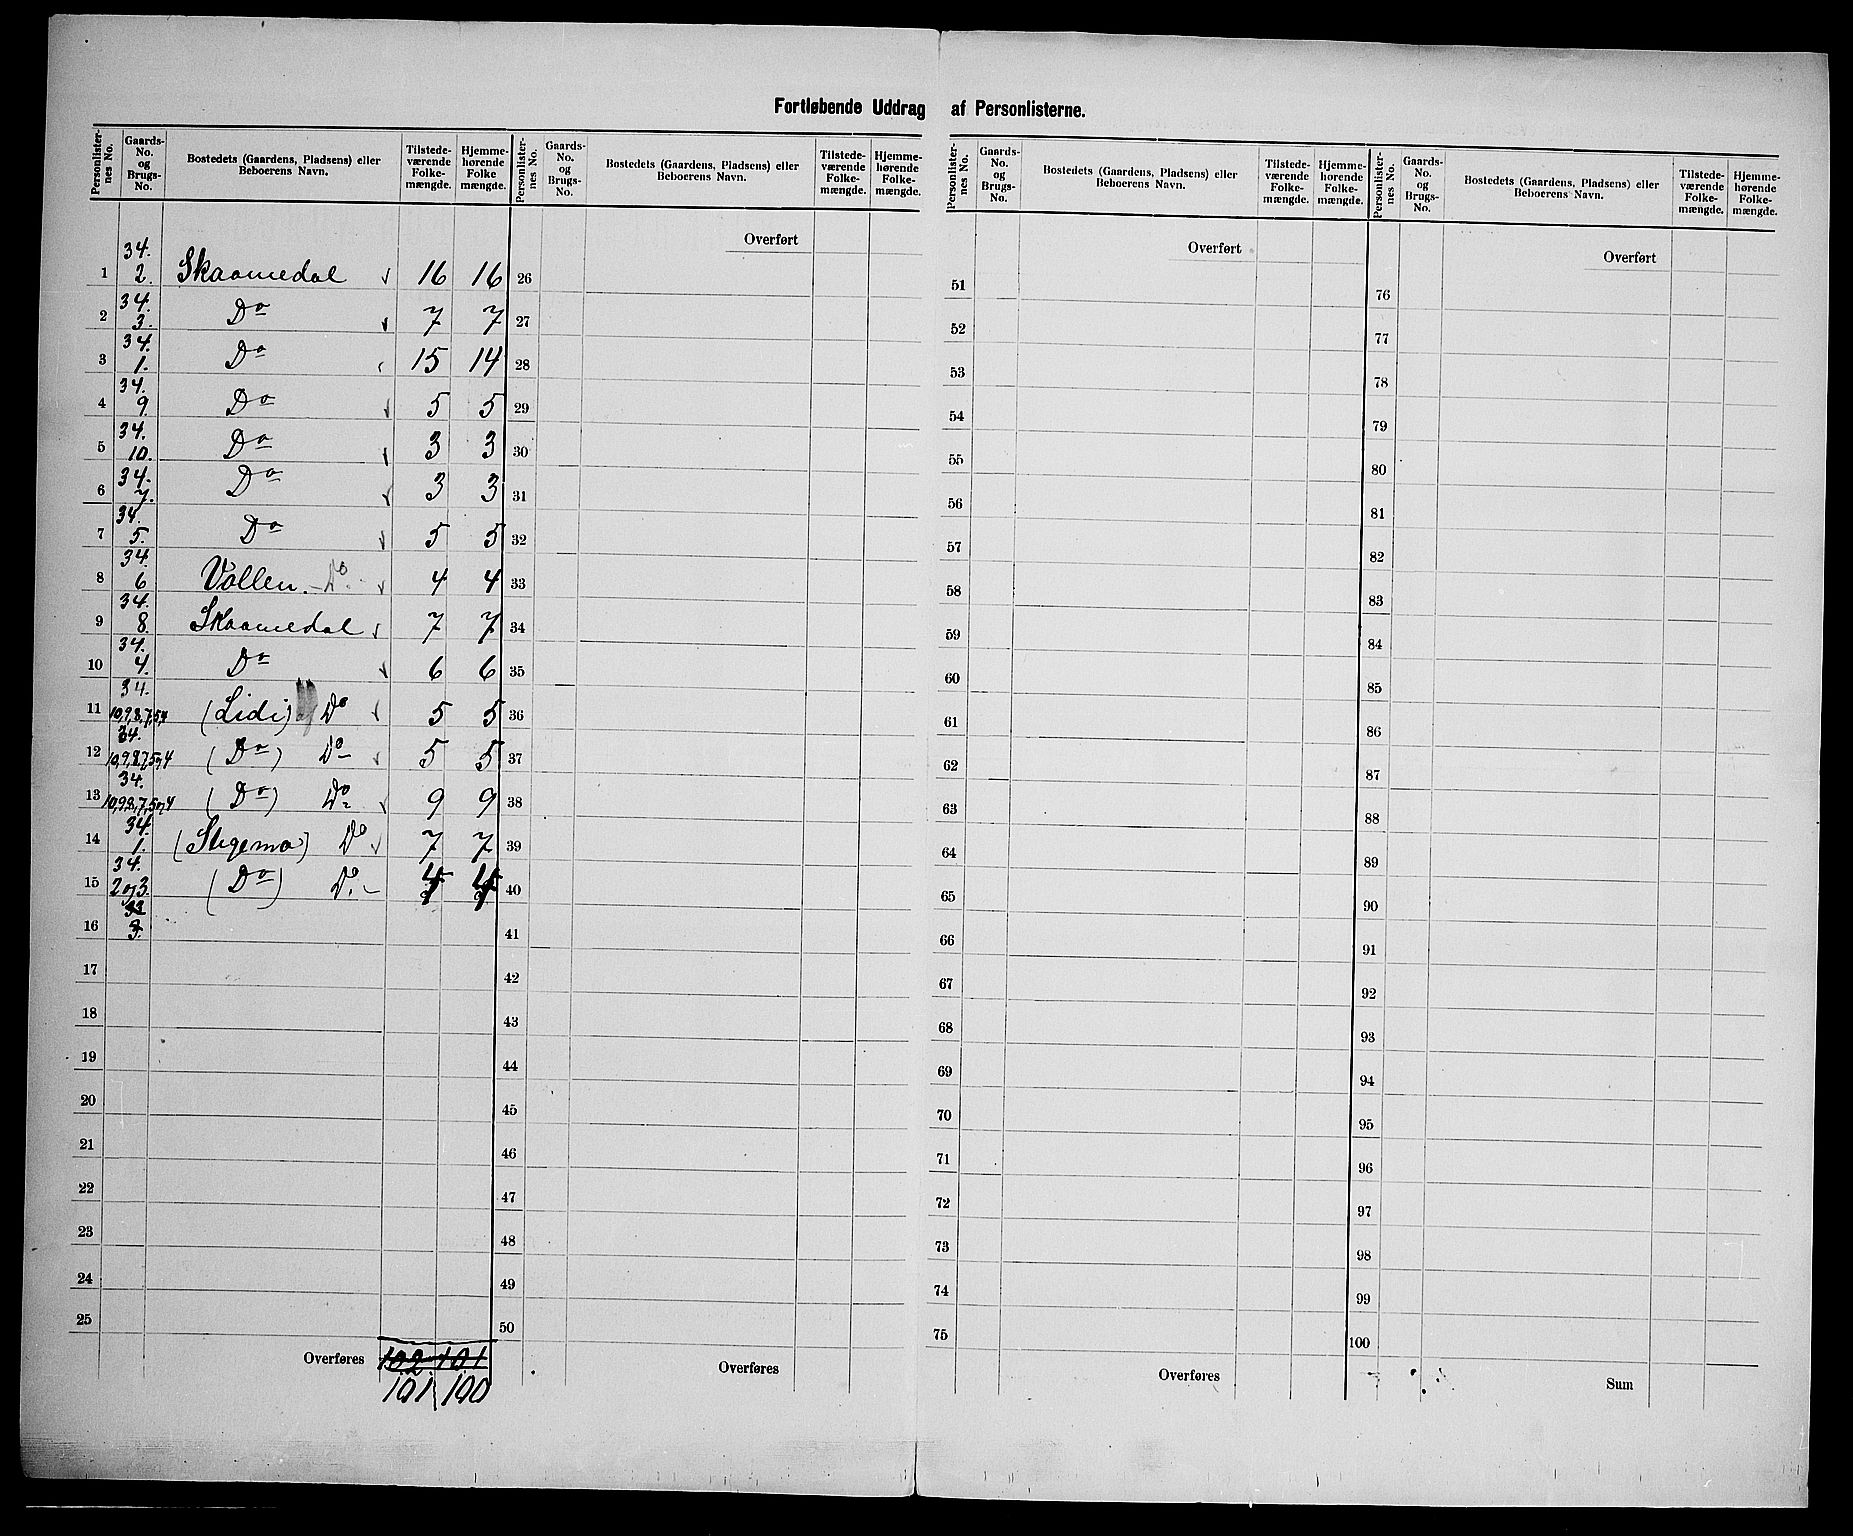 Fortløbende Uddrag af Personlisterne.
Personlister-nes No. | Gaards-No. og Brugs-No. | Bostedets (Gaardens, Pladsens) eller Beboerens Navn. | Tilstede-værende Folke-mængde. | Hjemme-hørende Folke mængde.
1 34. 2. Skaamedal 16 16
2 34. 3. Do 7 7
3 34. 1. Do 15 14
4 34. 9. Do 5 5
5 34. 10. Do 3 3
6 34. 7. Do 3 3
7 34. 5. Do 5 5
8 34. 6 Vollen. - Do. 4 4
9 34. 8. Skaamedal 7 7
10 34. 4. Do 6 6
11 34. 10,9,8,7,5,4 (Lidi) af Do 5 5
12 34. 10,9,8,7,5,4 (Do) Do 5 5
13 34. 10,9,8,7,5,4 (Do) Do 9 9
14 34. 1. (Stigemo) Do 7 7
15 34. 2 og 3. (Do) Do. 4 4
16
17
18
19
20
21
22
23
24
25
Overføres 102 101
101 100
Personlister-nes No. | Gaards-No. og Brugs-No. | Bostedets (Gaardens, Pladsens) eller Beboerens Navn. | Tilstede-værende Folke-mængde. | Hjemme-hørende Folke-mængde.
Overført
26
27
28
29
30
31
32
33
34
35
36
37
38
39
40
41
42
43
44
45
46
47
48
49
50
Overføres
Personlister-nes No. | Gaards-No. og Brugs-No. | Bostedets (Gaardens, Pladsens) eller Beboerens Navn. | Tilstede-værende Folke-mængde. | Hjemme-hørende Folke-mængde.
Overført
51
52
53
54
55
56
57
58
59
60
61
62
63
64
65
66
67
68
69
70
71
72
73
74
75
Overføres
Personlister-nes No. | Gaards-No. og Brugs-No. | Bostedets (Gaardens, Pladsens) eller Beboerens Navn. | Tilstede-værende Folke-mængde. | Hjemme-hørende Folke-mængde.
Overført
76
77
78
79
80
81
82
83
84
85
86
87
88
89
90
91
92
93
94
95
96
97
98
99
100
Sum